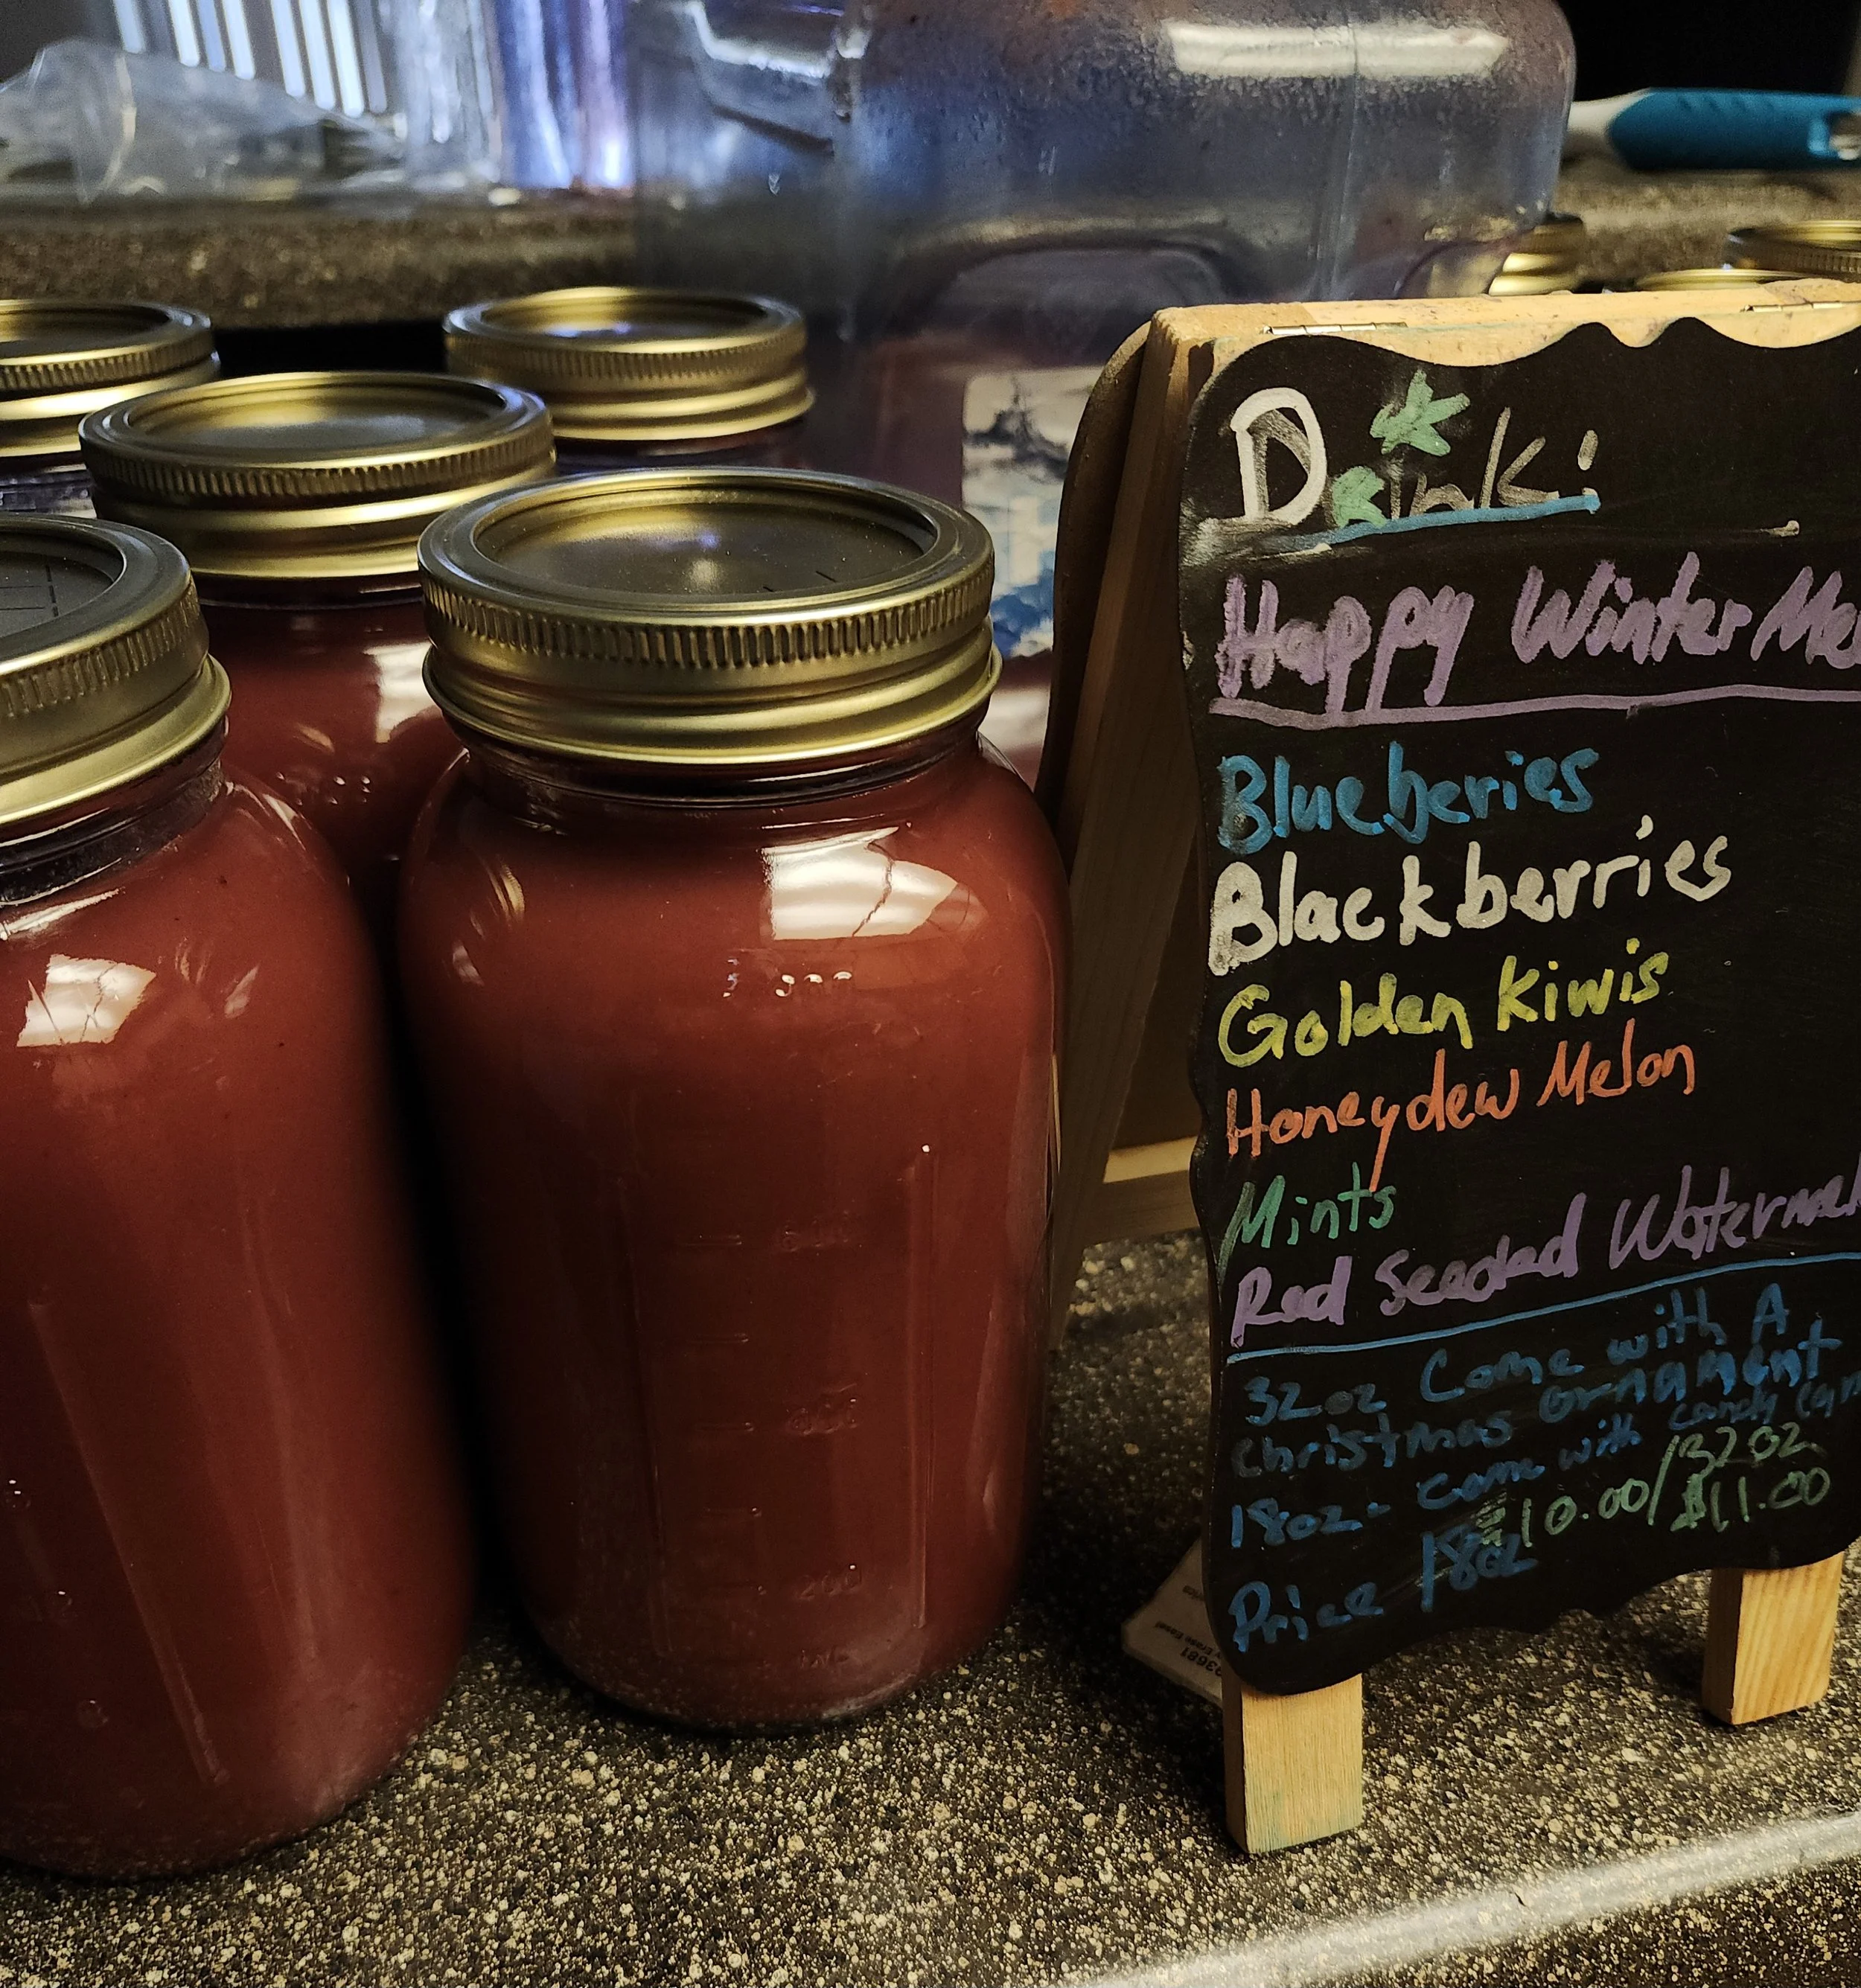 Drink:
Happy Winter Me
Blueberies
Blackberries
Golden Kiwis
Honeydew Melon
Mints
Red Seeded Watermel
32oz Come with A
Christmas Ornament
18oz - come with candy can
Price 18oz $10.00/32oz
$11.00